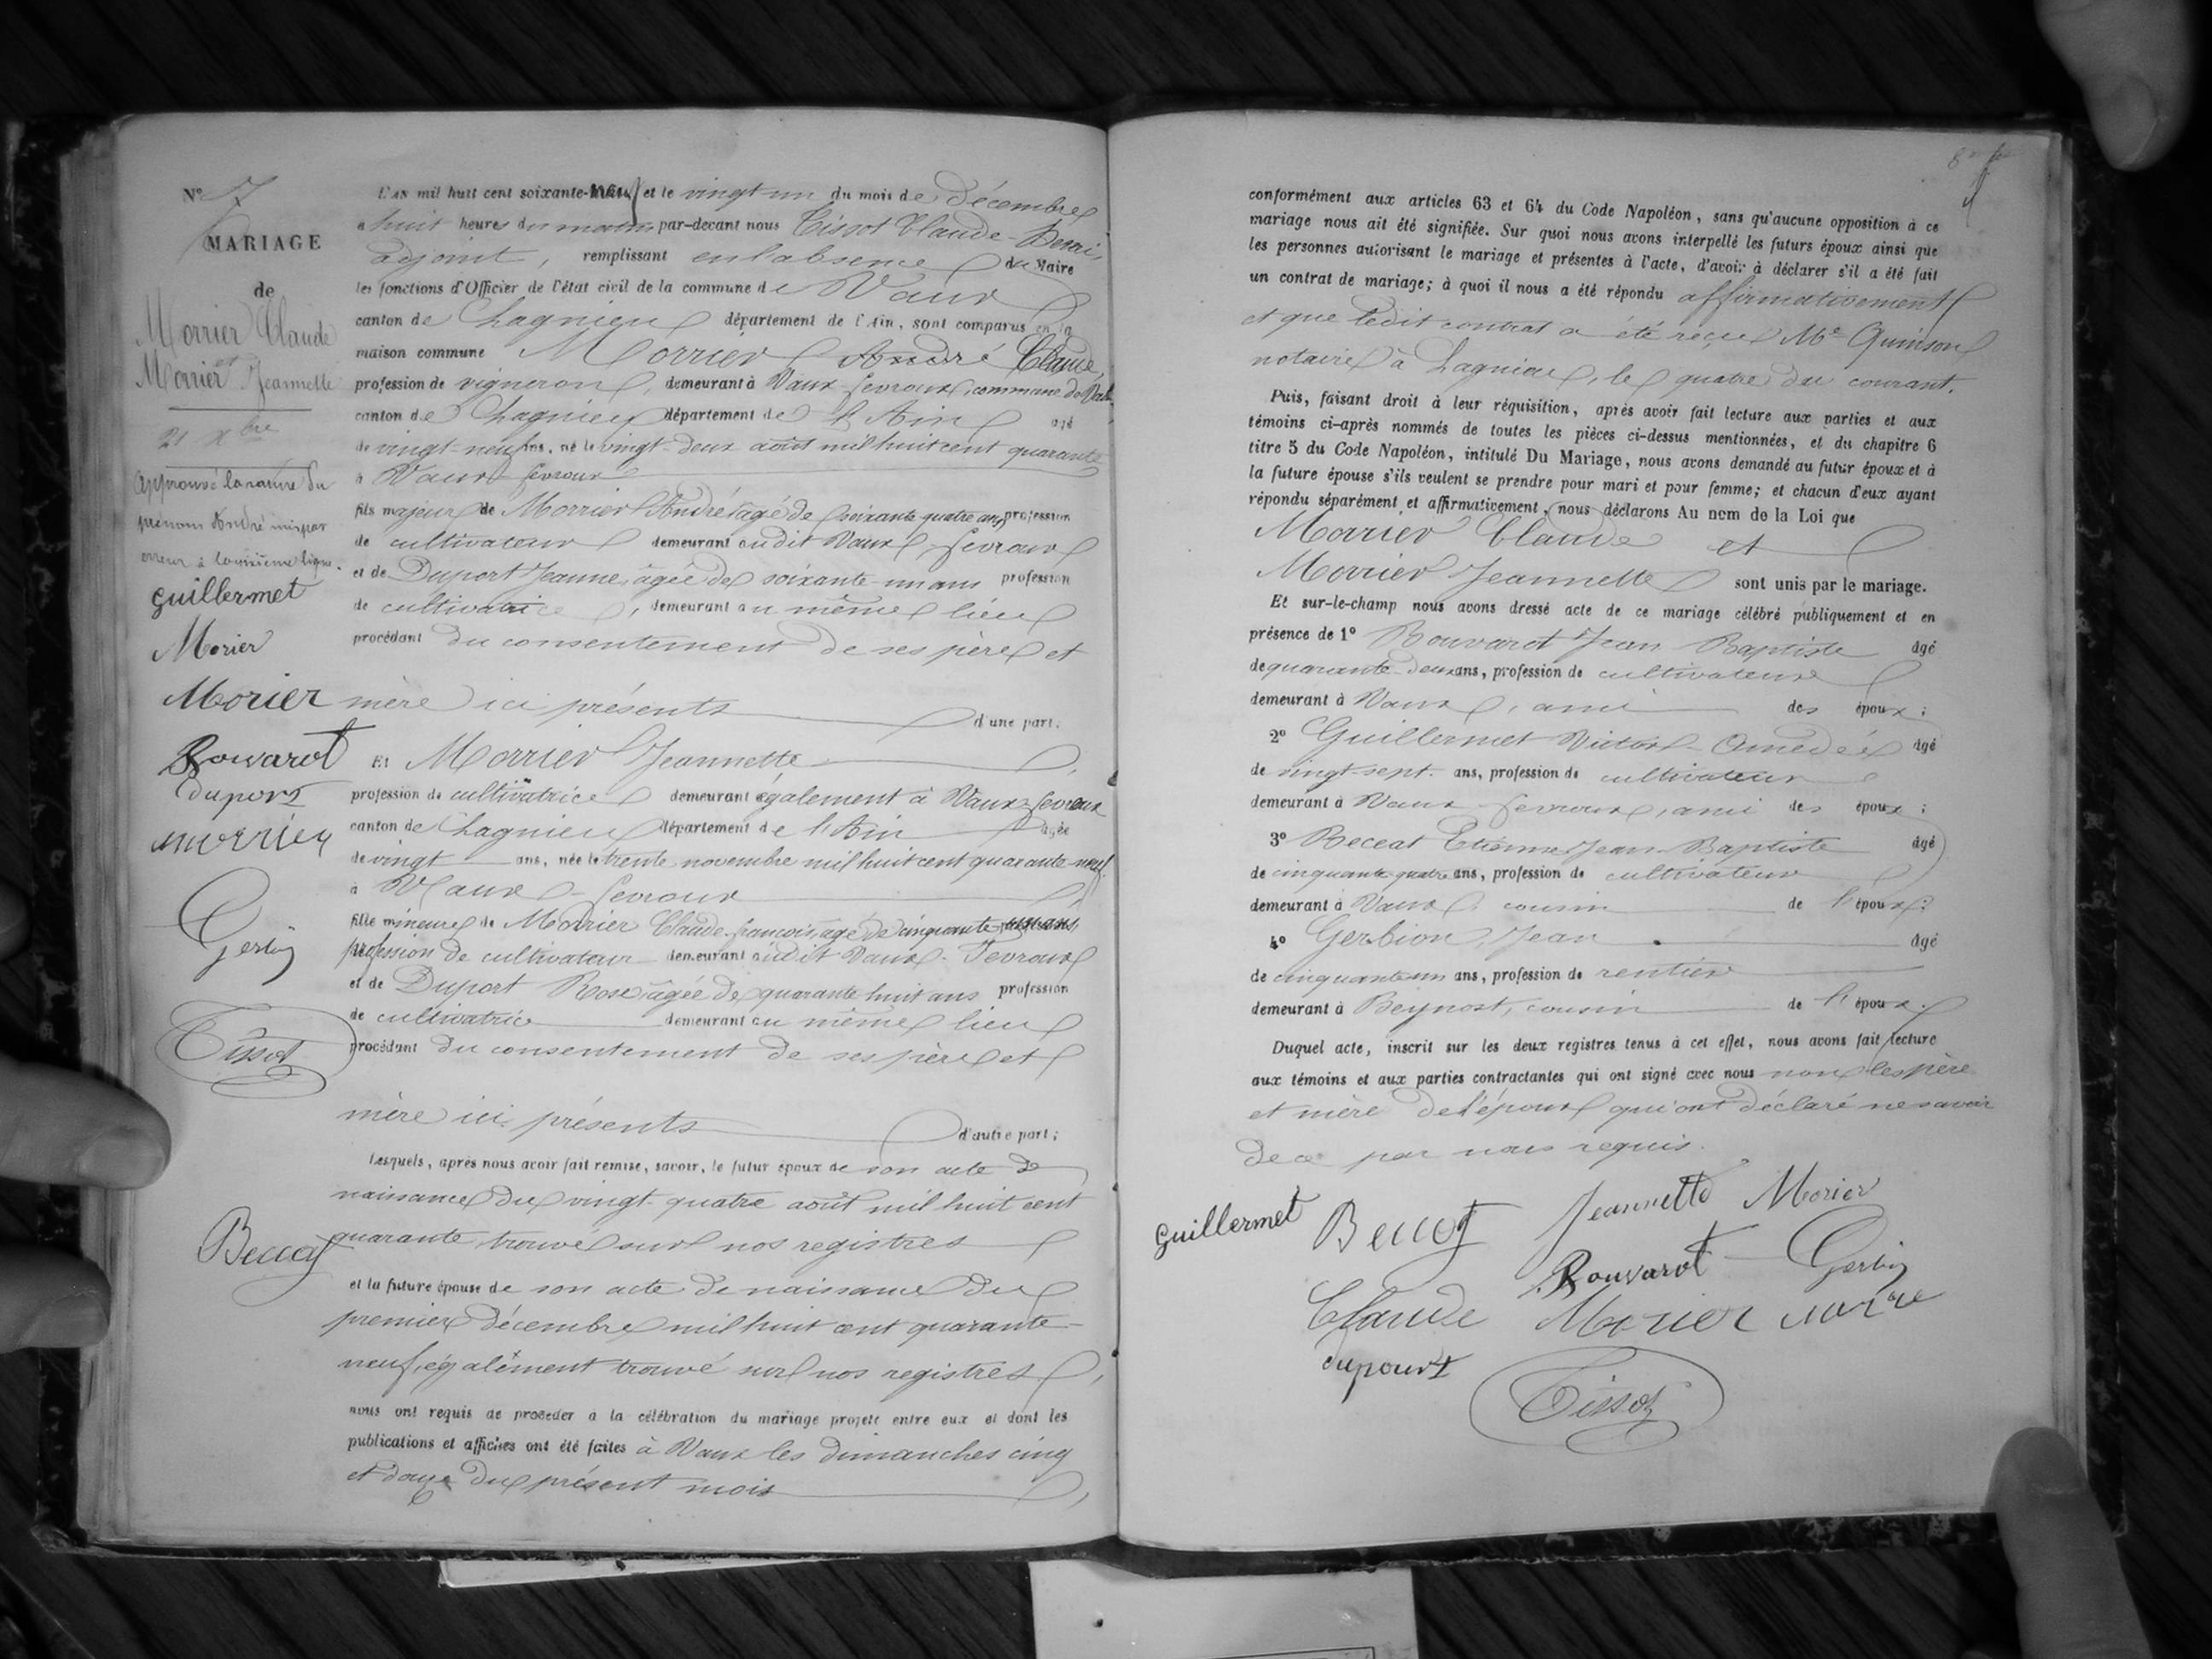 N° 7
MARIAGE
de
Morrier Claude
et
Morrier Jeannette
21 Xbre
Approuvé la rature du
prénom André mis par
erreur à la sixième ligne.
Guillermet
Morier
Morier
Bouvarot
duport
morrier
Gerbion
Tissot
Beccat
L'an mil huit cent soixante-neuf et le vingt-un du mois de Décembre
a huit heures du matin par-devant nous Tissot Claude-Henri,
adjoint, remplissant en l'absence du Maire
les fonctions d'Officier de l'état civil de la commune de Vaux
canton de Lagnieu département de l'Ain, sont comparus en la
maison commune Morrier André Claude,
profession de vigneron, demeurant à Vaux-Fevroux, commune de Vaux
canton de Lagnieu département de l'Ain agé
de vingt-neuf ans, né le vingt-deux août mil huit cent quarante
à Vaux Fevroux
fils majeur de Morrier André âgé de soixante quatre ans profession
de cultivateur demeurant audit Vaux Fevroux
et de Duport Jeanne, âgée de soixante-un ans profession
de cultivatrice, demeurant au même lieu
procédant du consentement de ses père et
mère ici présents d'une part.
Et Morrier Jeannette,
profession de cultivatrice demeurant également à Vaux-Fevroux
canton de Lagnieu département de l'Ain agée
de vingt ans, née le trente novembre mil huit cent quarante-neuf
à Vaux-Fevroux,
fille mineure de Morrier Claude-françois, âgé de cinquante ans,
profession de cultivateur demeurant audit Vaux-Fevroux
et de Duport Rose âgée de quarante huit ans profession
de cultivatrice demeurant au même lieu
procédant du consentement de ses père et
mère ici présents d'autre part;
Lesquels, après nous avoir fait remise, savoir, le futur époux de son acte de
naissance du vingt-quatre août mil huit cent
quarante trouvé sur nos registres
et la future épouse de son acte de naissance du
premier décembre mil huit cent quarante-
neuf, également trouvé sur nos registres,
nous ont requis de proceder à la célébration du mariage projeté entre eux et dont les
publications et affiches ont été faites à Vaux les dimanches cinq
et douze du présent mois,
conformément aux articles 63 et 64 du Code Napoléon, sans qu'aucune opposition à ce
mariage nous ait été signifiée. Sur quoi nous avons interpellé les futurs époux ainsi que
les personnes autorisant le mariage et présentes à l'acte, d'avoir à déclarer s'il a été fait
un contrat de mariage; à quoi il nous a été répondu affirmativement
et que ledit contrat a été reçu Me Quinson
notaire à Lagnieu, le quatre du courant.
Puis, faisant droit à leur réquisition, après avoir fait lecture aux parties et aux
témoins ci-après nommés de toutes les pièces ci-dessus mentionnées, et du chapitre 6
titre 5 du Code Napoléon, intitulé Du Mariage, nous avons demandé au futur époux et à
la future épouse s'ils veulent se prendre pour mari et pour femme; et chacun d'eux ayant
répondu séparément et affirmativement, nous déclarons Au nom de la Loi que
Morrier Claude et
Morrier Jeannette sont unis par le mariage.
Et sur-le-champ nous avons dressé acte de ce mariage célébré publiquement et en
présence de 1° Bouvarot Jean Baptiste âgé
de quarante-deux ans, profession de cultivateur
demeurant à Vaux, ami des époux;
2° Guillermet Victor-Amédée âgé
de vingt-sept ans, profession de cultivateur
demeurant à Vaux Fevroux, ami des époux;
3° Beccat Etienne Jean-Baptiste âgé
de cinquante quatre ans, profession de cultivateur
demeurant à Vaux, cousin de l'époux;
4° Gerbion, Jean âgé
de cinquante un ans, profession de rentier
demeurant à Beynost, cousin de l'époux.
Duquel acte, inscrit sur les deux registres tenus à cet effet, nous avons fait lecture
aux témoins et aux parties contractantes qui ont signé avec nous non les père
et mère de l'époux qui ont déclaré ne savoir
de ce par nous requis.
Guillermet Beccat Jeannette Morier
Bouvarot Gerbion
Claude Morier
dupourt
Tissot